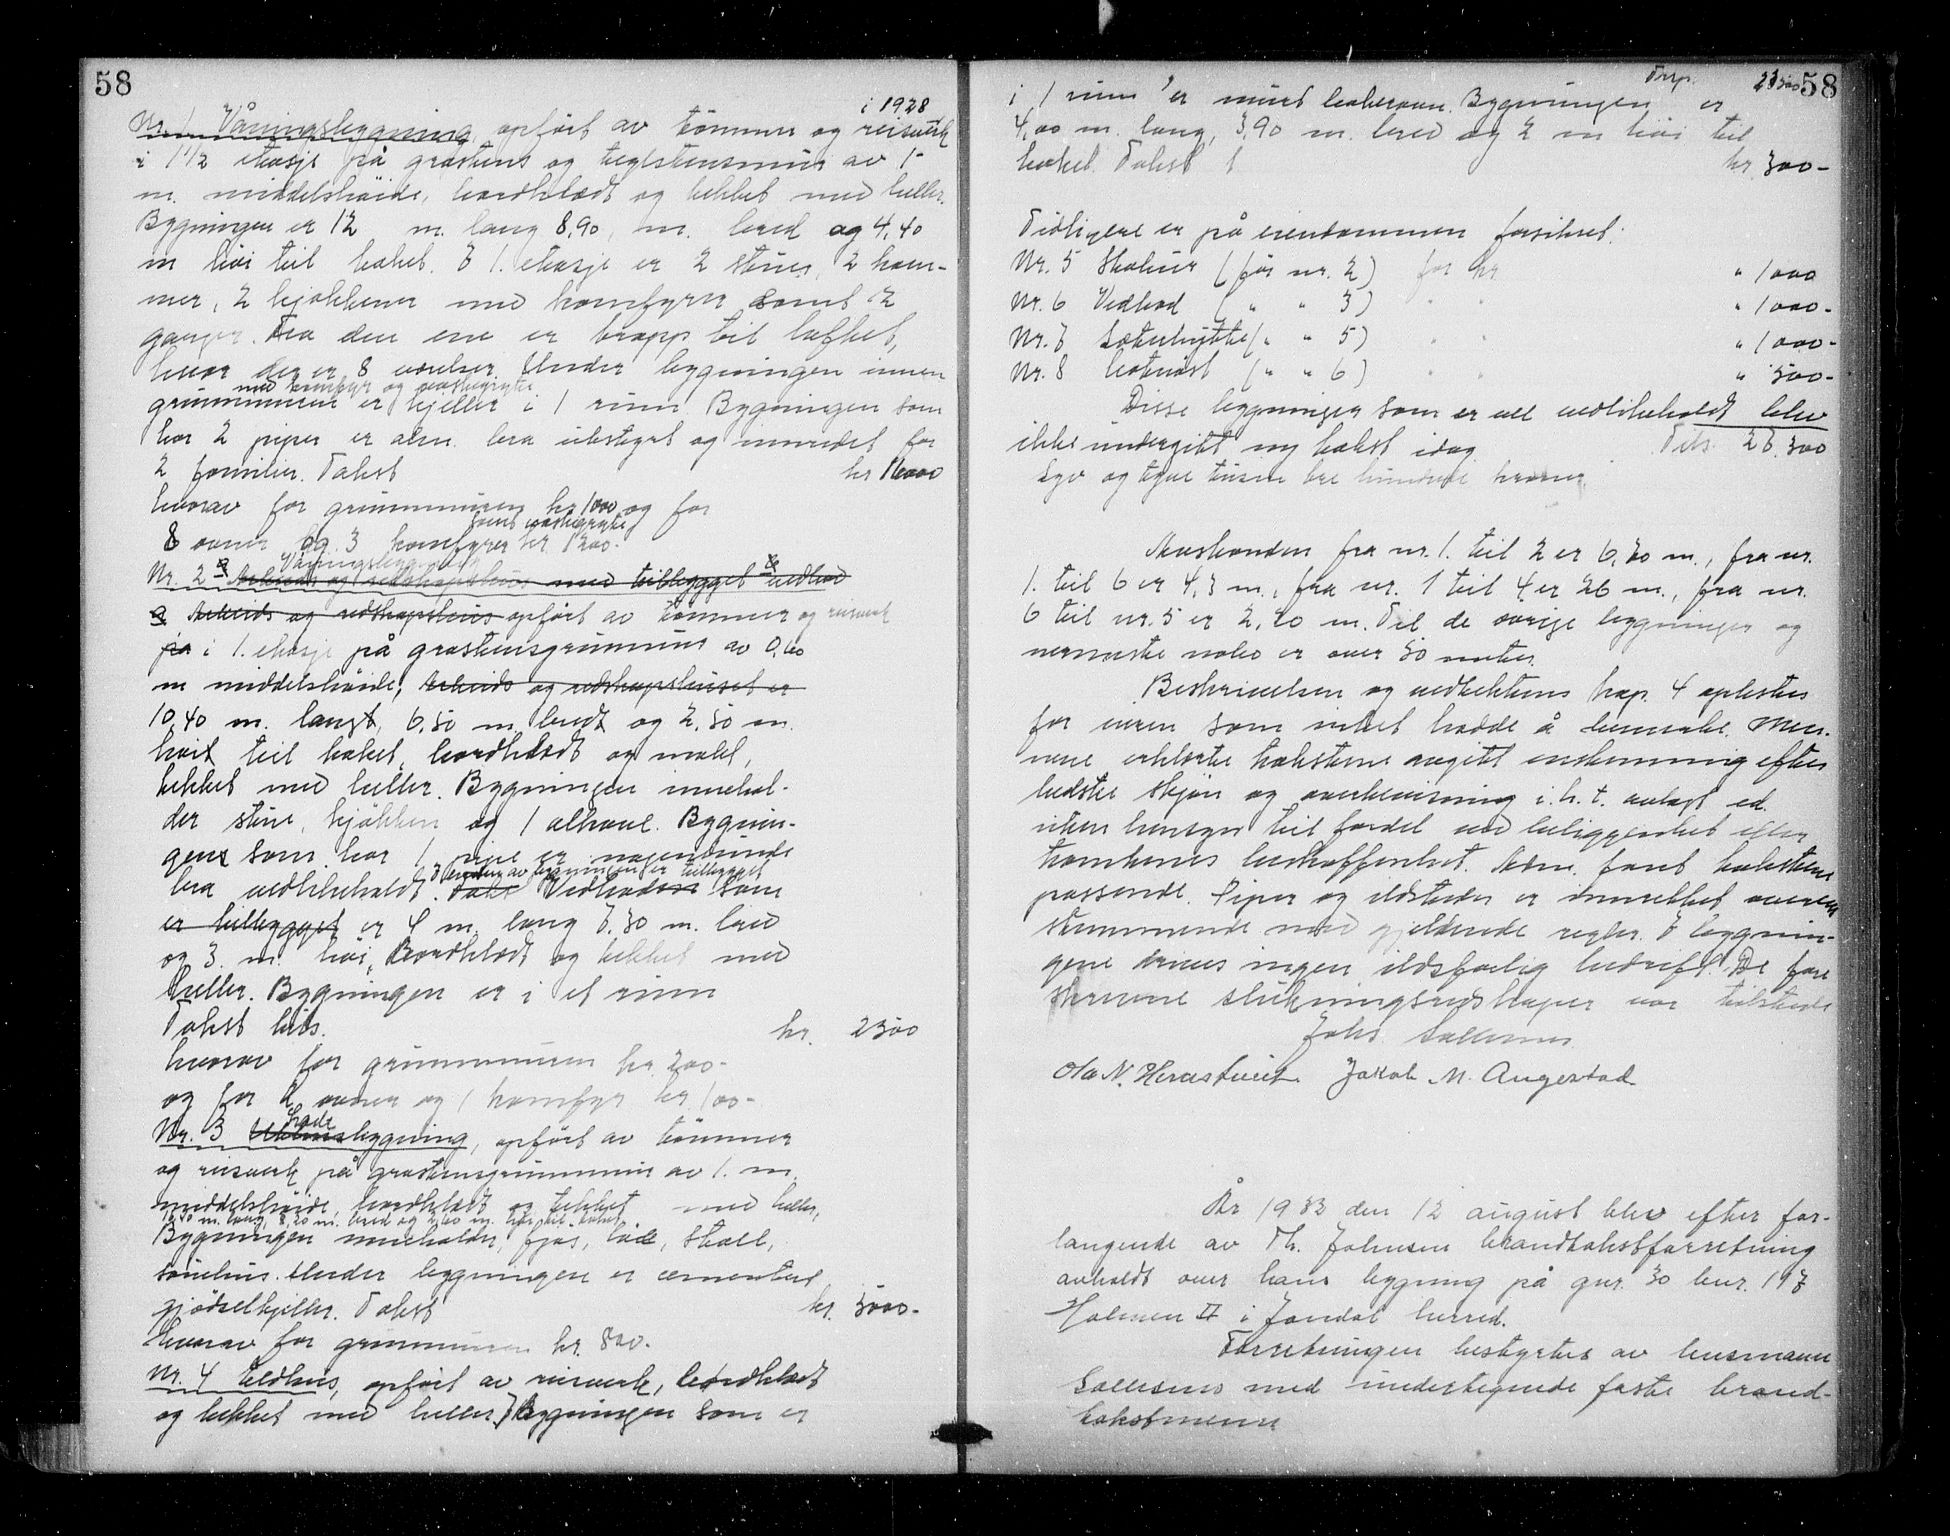 58
i 1928
Nr. 1 Våningsbygning, opført av tømmer og reisverk
i 1 1/2 etasje på gråstens og teglstensmur av 1-
m. middelshøide, bordklædt og tekket med heller.
Bygningen er 12 m. lang 8,90, m. bred og 4,40
m høi til taket. I 1. etasje er 2 stuer, 2 kam-
mer, 2 kjøkkener med komfyrer samt 2
ganger. Fra den ene er trapp til loftet,
hvor der er 8 værelser. Under bygningen innen
med komfyr og vaskegryte
grunnmuren er kjeller i 1 rum. Bygningen som
har 2 piper er alm. bra utstyrt og innredet for
2 familier. Takst kr 16000
hvorav for grunnmuren kr 1000 og for
samt vaskegryte
8 ovner og 3 komfyrer kr. 1200.
Våningsbygning
Nr. 2 a Arbeids og redskapshus med tilbygget vedbod
a Arbeids og redskapshus opført av tømmer og reisverk
på i 1. etasje på gråstensgrunnmur av 0,60
m middelshøide, Arbeids og redskapshuset er
10,40 m. langt, 6,50 m. bredt og 2,50 m.
høit til taket, bordklædt og malt,
tekket med heller. Bygningen innehol-
der stue, kjøkken og 1 alkove. Bygnin-
gens som har 1 pipe er nogenlunde
I enden av bygningen er tilbygget
bra vedlikeholdt. Takst Vedboden som
er tilbygget er 4 m. lang 7.30 m. bred
og 3. m. høi, Bordklædt og tekket med
heller. Bygningen er i et rum
Takst tils. kr. 2500
hvorav for grunnmuren kr 200-
og for 2 ovner og 1 komfyr kr 100-
Lade
Nr. 3 Uthusbygning, opført av tømmer
og reisverk på gråstensgrunnmur av 1. m.
middelshøide, bordklædt og tekket med heller,
m. lang, 8,20 m. bred og 2,60 m. høi til taket
Bygningen inneholder, fjøs, løe, stall,
sauehus. Under bygningen er cementert
gjødselkjeller. Takst kr. 5000-
hvorav for grunnmuren kr. 800.
Nr. 4 Eldhus, opført av reisverk, bordklædt
og tekket med heller. Bygningen som er
Trsp. 23500 58
i 1 rum er muret bakerovn. Bygningen er
4,00 m. lang, 3,90 m. bred og 2 m høi til
taket. Takst kr. 300-
Tidligere er på eiendommen forsikret:
Nr. 5 Skahus (før nr. 2) for kr " 1000
Nr. 6 Vedbod ( " " 3) " " " 1000-
Nr. 7 Sæterhytte ( " " 5) " " " 1000-
Nr. 8 Båtnøst ( " " 6) " " " 500-
Disse bygninger som er vel vedlikeholdt blev
ikke undergitt ny takst idag Tils. 27.300
Syv og tyve tusen tre hundrede kroner.
Avstanden fra nr. 1. til 2 er 6,20 m., fra nr.
1. til 6 er 4,3 m., fra nr. 1 til 4 er 26 m., fra nr.
6 til nr. 5 er 2,20 m. Til de øvrige bygninger og
nermeste nabo er over 50 meter.
Beskrivelsen og vedtektens kap. 4 oplestes
for eieren som intet hadde å bemerke. Men-
nene erklærte taksterne avgitt enstemmig efter
bedste skjøn og overbevisning i. h. t. avlagt ed.
uten hensyn til fordel ved beliggenhet efter
tomtenes beskaffenhet. Alm. fant taksterne
passende. Piper og ildsteder er innrettet overens
stemmende med gjeldende regler. I bygnin-
gene drives ingen ildsfarlig bedrift. De fore
skrevne slukningsredskaper var tilstede
Johs. Sallesen
Ola N. Herastveit Jakob M. Augestad
År 1932 den 12 august blev efter for-
langende av Th. Johnsen brandtakstforretning
avholdt over hans bygning på gnr. 30 bnr. 197
Holmen II i Jondal herred.
Forretningen bestyrtes av lensmann
Sallesens med undertegnede faste brand-
takstmenn